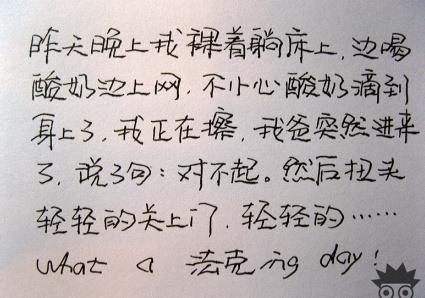 昨天晚上我裸着躺床上，边喝
酸奶边上网，不小心酸奶滴到
身上了，我正在擦，我爸突然进来
了，说了句：对不起。然后扭头
轻轻的关上门，轻轻的……
what a 法克 ing day！